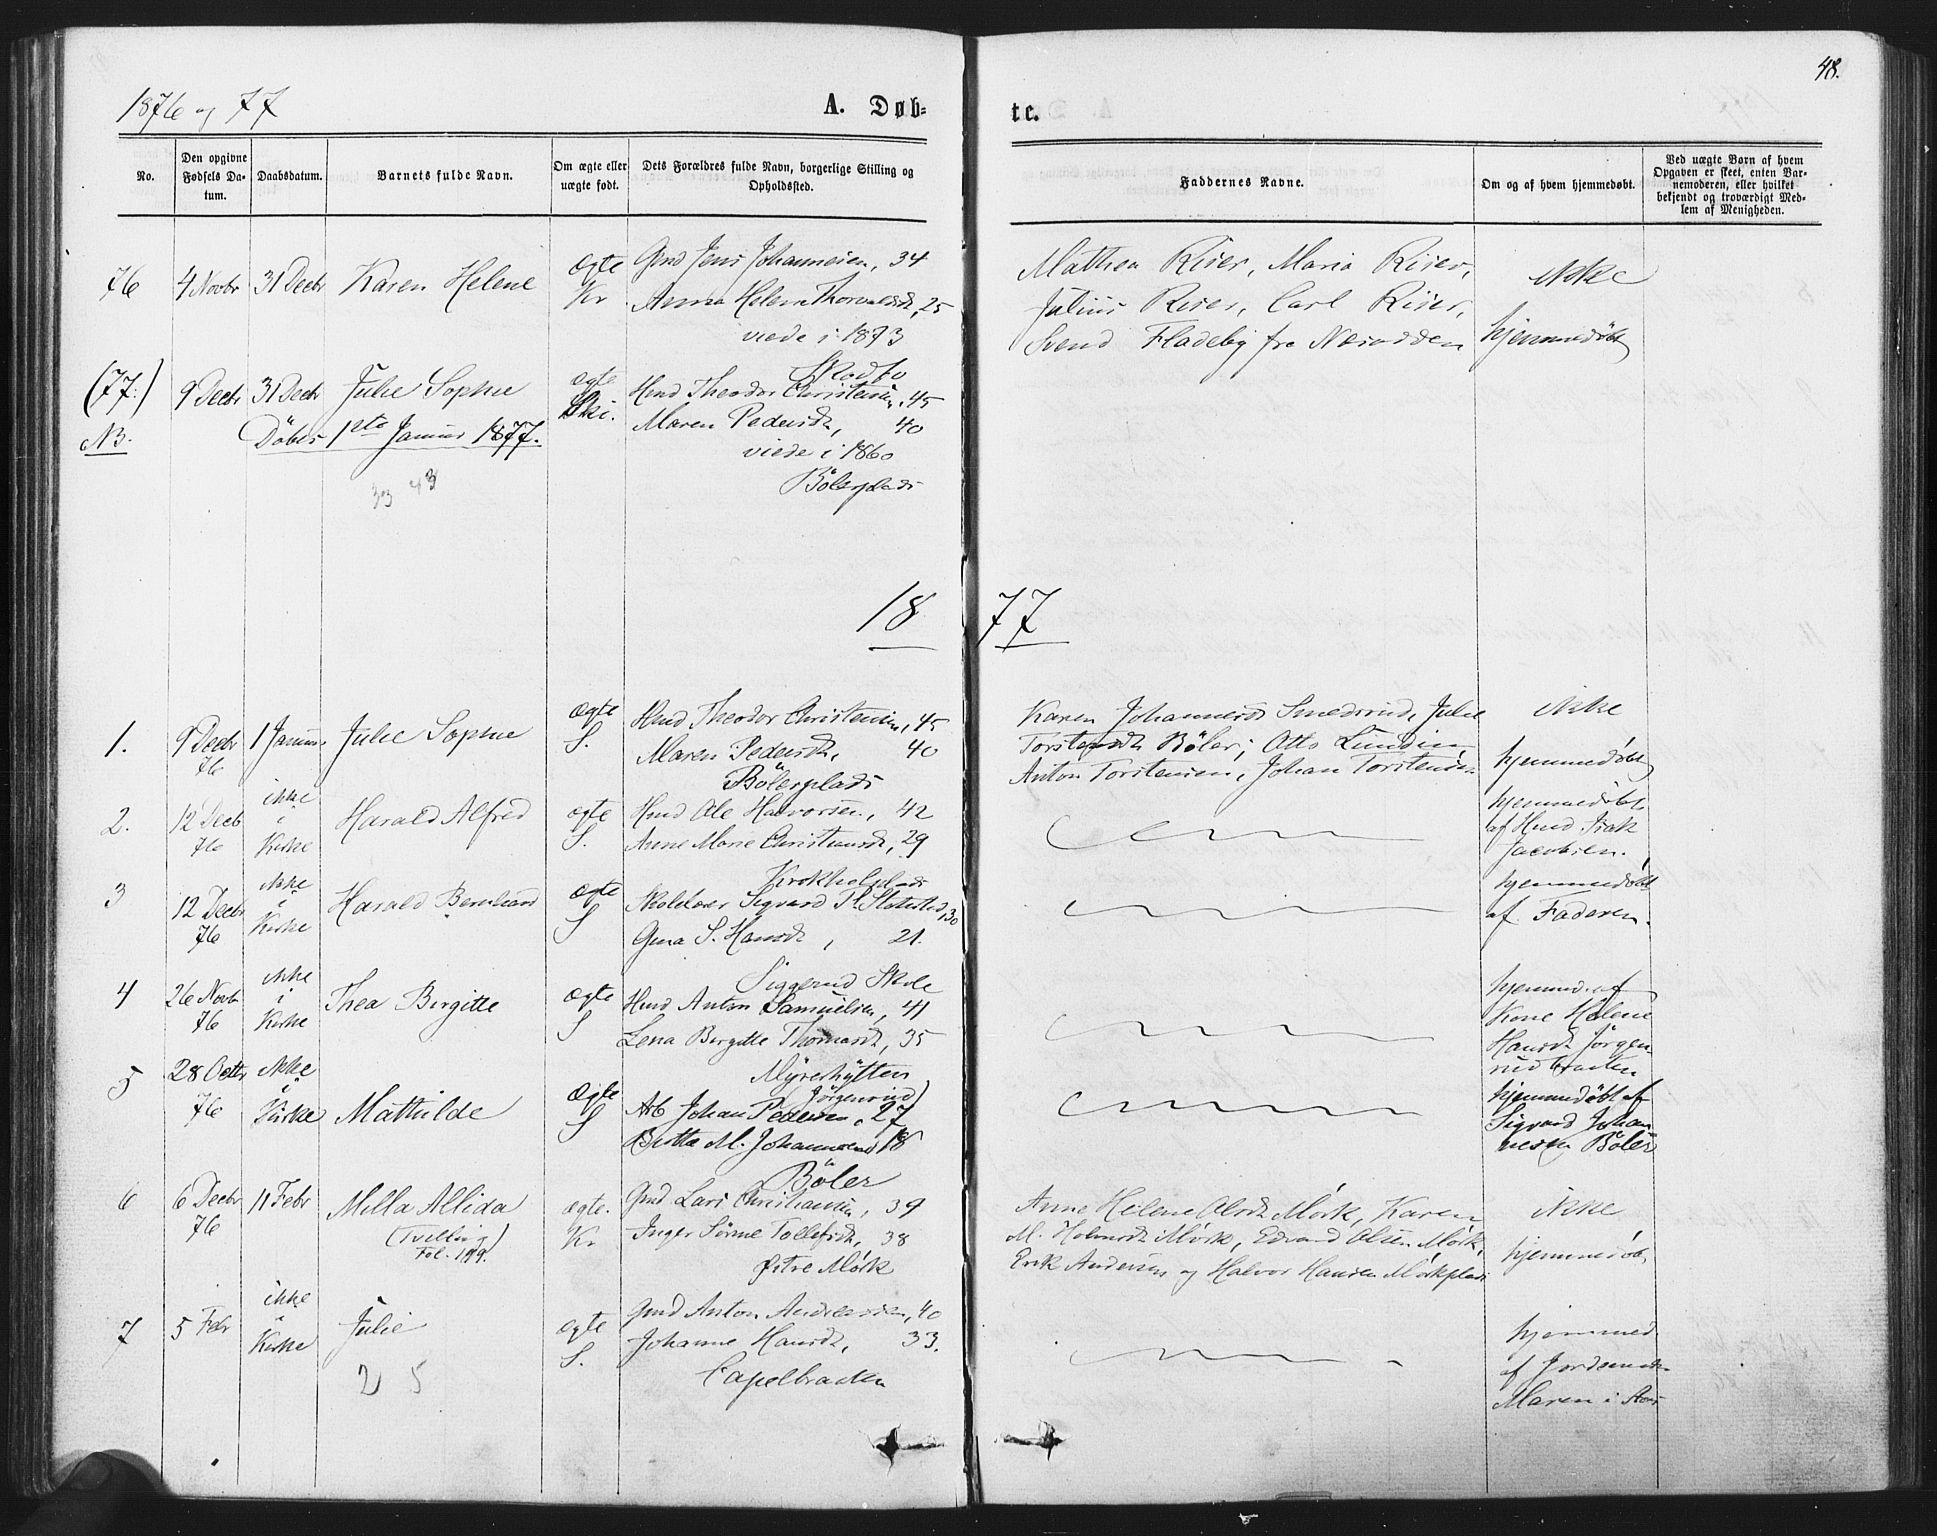 48.
1876 og 77
A. Døb-
te.
No.
Den opgivne Fødsels Da-
tum.
Daabsdatum.
Barnets fulde Navn.
Om ægte eller
uægte født.
Dets Forældres fulde Navn, borgerlige Stilling og
Opholdssted.
Faddernes Navne.
Om og af hvem hjemmedøbt.
Ved uægte Børn af hvem
Opgaven er skeet, enten Bar-
nemoderen, eller hvilket
bekjendt og troværdigt Med-
lem af Menigheden.
76
4 Novbr
31 Decbr
Karen Helene
Ægte
Kr.
Gmd Jens Johannesen, 34
Anna Helene Thorvaldsd, 25
viede i 1873
Skodbo
Mathea Riser, Maria Riser,
Julius Riser, Carl Riser,
Svend Fladeby fra Næsodden
ikke
hjemmedøbt
(77.)
NB.
9 Decbr
31 Decbr
Julie Sophie
Døbes 1ste Januar 1877.
33 43
ægte
Ski.
Hmd Theodor Christensen, 45
Maren Pedersdt, 40
viede i 1860
Bölerplads
18 77
1.
9 Decbr
76
1 Januar
Julie Sophie
Ægte
S.
Hmd Theodor Christensen, 45
Maren Pedersdt, 40
Bölerplads
Karen Johannesdt Smedsrud, Julie
Torstensdt Böler, Otto Lundin,
Anton Torstensen, Johan Torstensen
ikke
hjemmedøbt
2.
12 Decb
76
ikke
i
Kirke
Harald Alfred
ægte
S.
Hmd Ole Halvorsen, 42
Anne Marie Christiansdt, 29
Krokholplads
hjemmedøbt
af Hmd Isak
Jacobsen.
3
12 Decbr
76
ikke
i
Kirke
Harald Bernhard
ægte
S
Skolelærer Sigvard 30
Gina S. Hansdt, 21.
Siggerud Skole
hjemmedøbt
af Faderen.
4
26 Novbr
76
ikke
i
Kirke
Thea Birgitte
Ægte
S
Hmd Anton Samuelsen, 41
Lena Birgitte Thomasdt, 35
Myrehytten
Jörgensrud)
hjemmd. af
Kone Helene
Hansdt Jörgens-
rudbraaten
5
28 Octbr
76
ikke
i
Kirke
Mathilde
Ægte
S
Arb Johan Pedersen, 27
Britta M. Johannesdt 18
Böler
hjemmedøbt af
Sigvard Johan
nesen Böler
6
6 Decbr
76
11 Febr
Milla Allida
(Tvilling
Fol. 119.)
ægte.
Kr
Gmd Lars Christiansen, 39
Inger Sörine Tollefsdt, 38
Östre Mörk
Anne Helene Olsdt Mörk, Karen
M. Holmsdt Mörk, Edvard Olsen Mörk,
Erik Andersen og Halvor Hansen Mörkplads
ikke
hjemmedøbt
7
5 Febr
ikke
i
Kirke
Julie
2 5
ægte
S.
Gmd Anton Andreassen, 40
Johanne Hansdt, 33.
Capelbraaten
hjemmed.
af Jordemoder
Maren i Aas